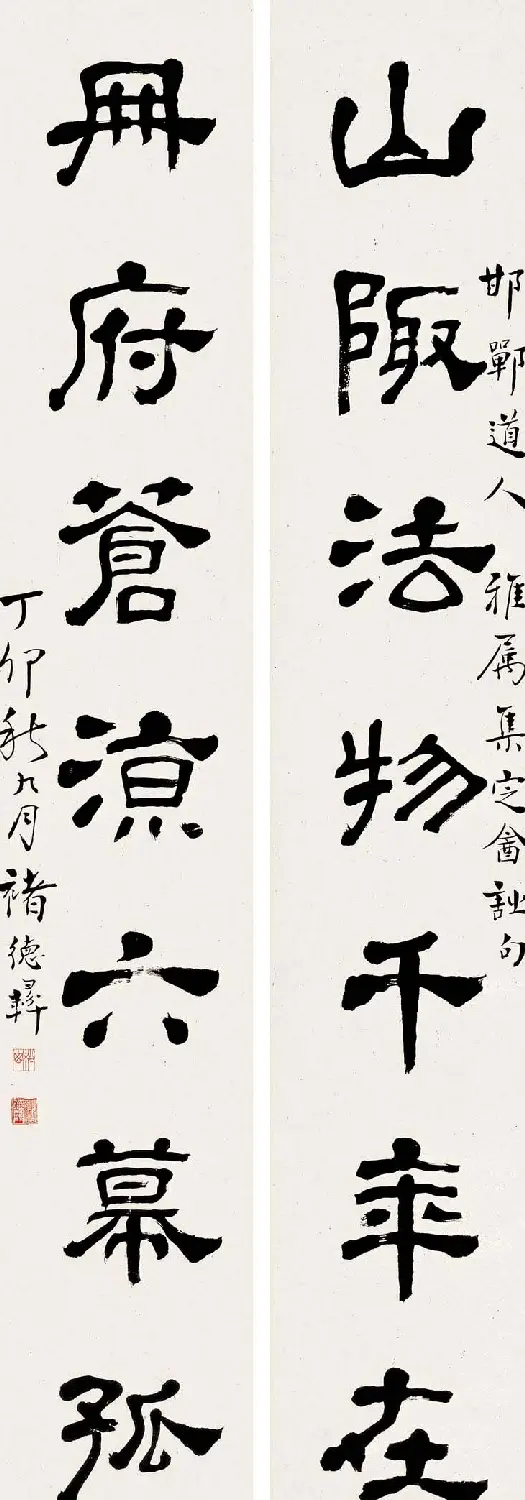 邯鄲道人 雅属集定盦詩句
山陬法物千年在
冊府蒼涼六幕孤
丁卯秋九月褚德彝